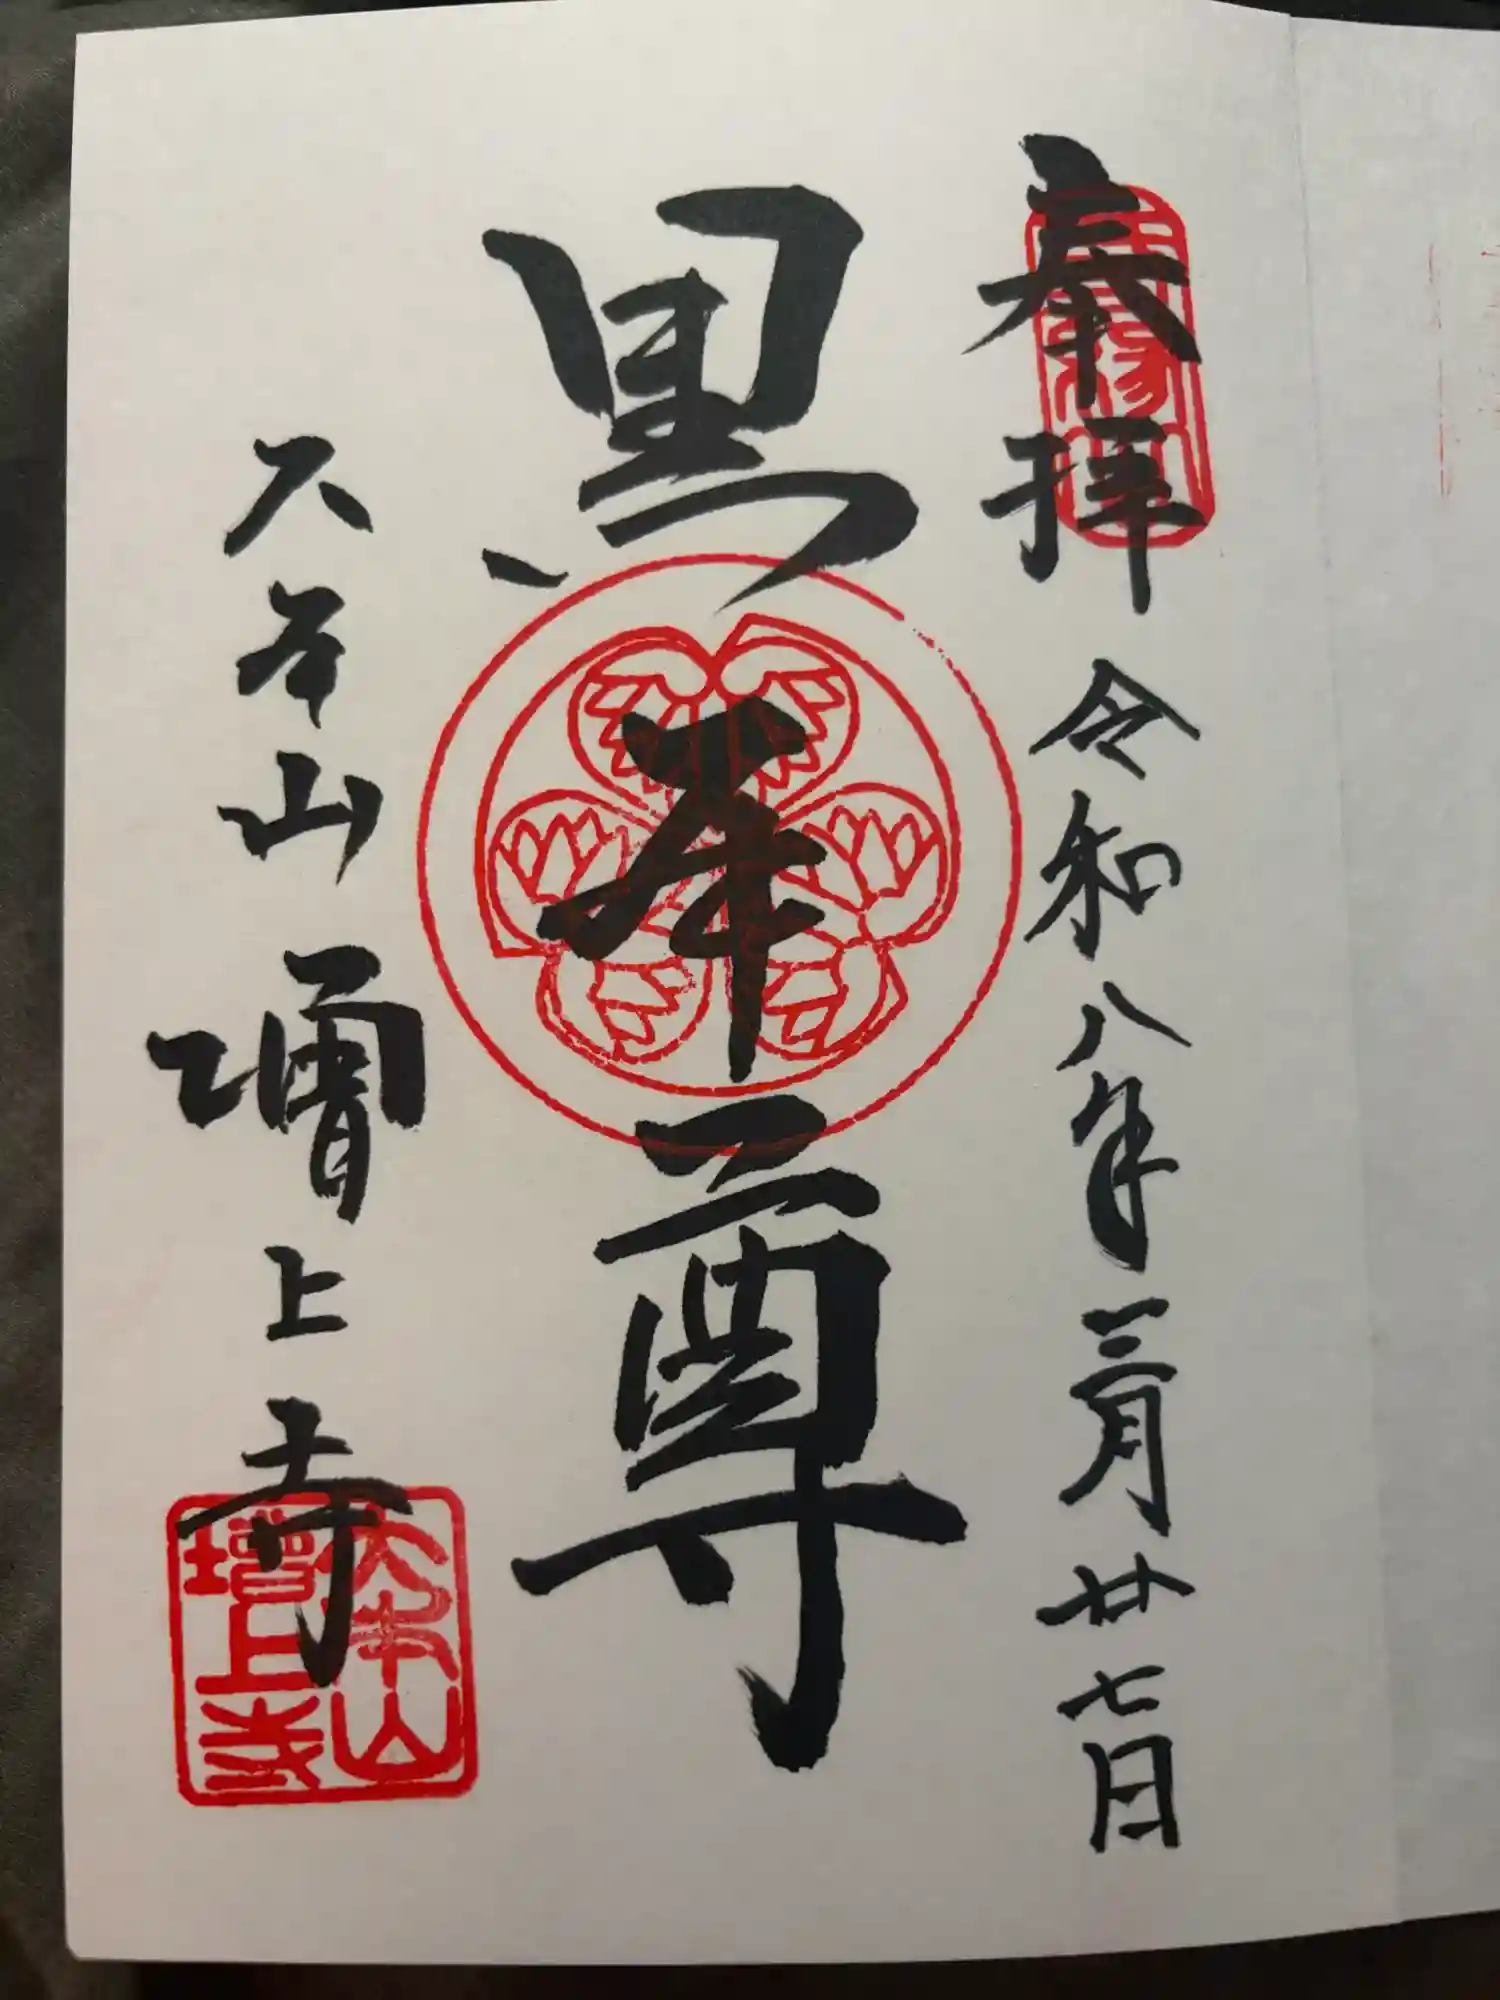 奉拝 令和八年三月廿七日
黒本尊
大本山 増上寺
大本山
増上寺